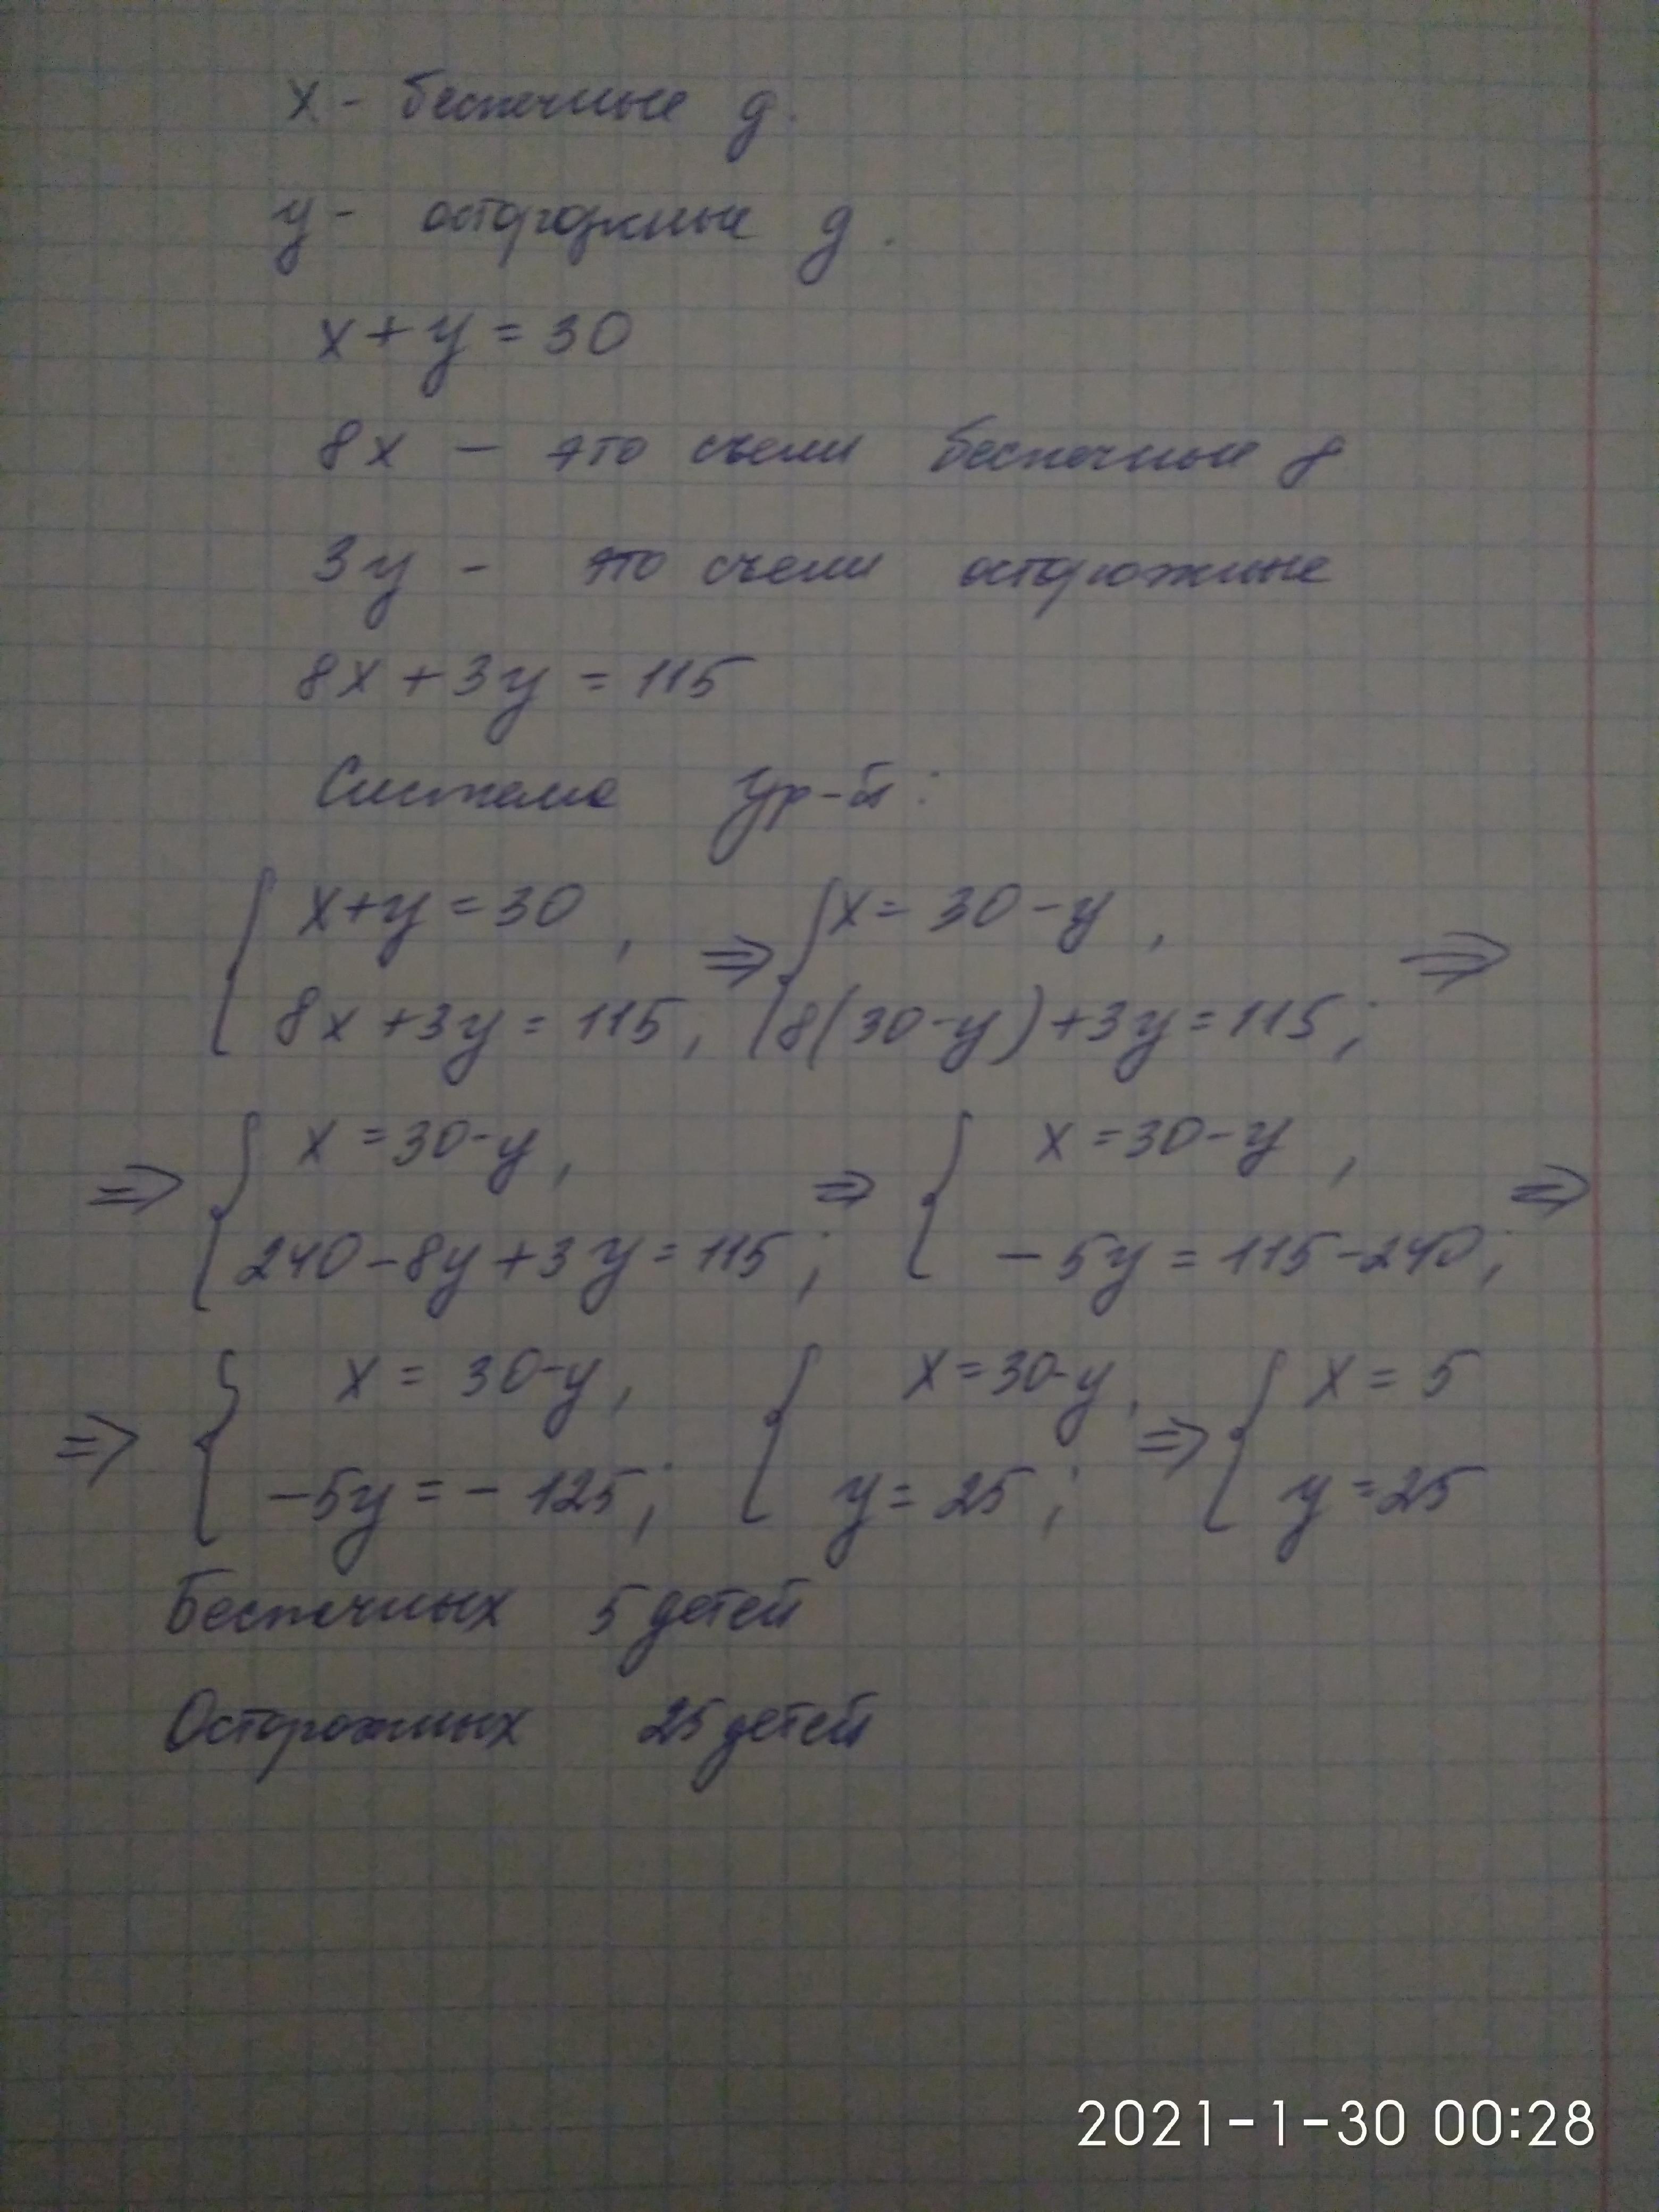 x - беспечные д.
y - осторожные д.
x + y = 30
8x - это съели беспечные д
3y - это съели осторожные
8x + 3y = 115
Система ур-й:
{ x+y=30, ⇒ { x = 30-y, ⇒
8x+3y=115, 8(30-y)+3y=115;
⇒ { x=30-y, ⇒ { x=30-y, ⇒
240-8y+3y=115; -5y=115-240;
⇒ { x=30-y, { x=30-y, ⇒ { x=5
-5y=-125; y=25; y=25
Беспечных 5 детей
Осторожных 25 детей
2021-1-30 00:28